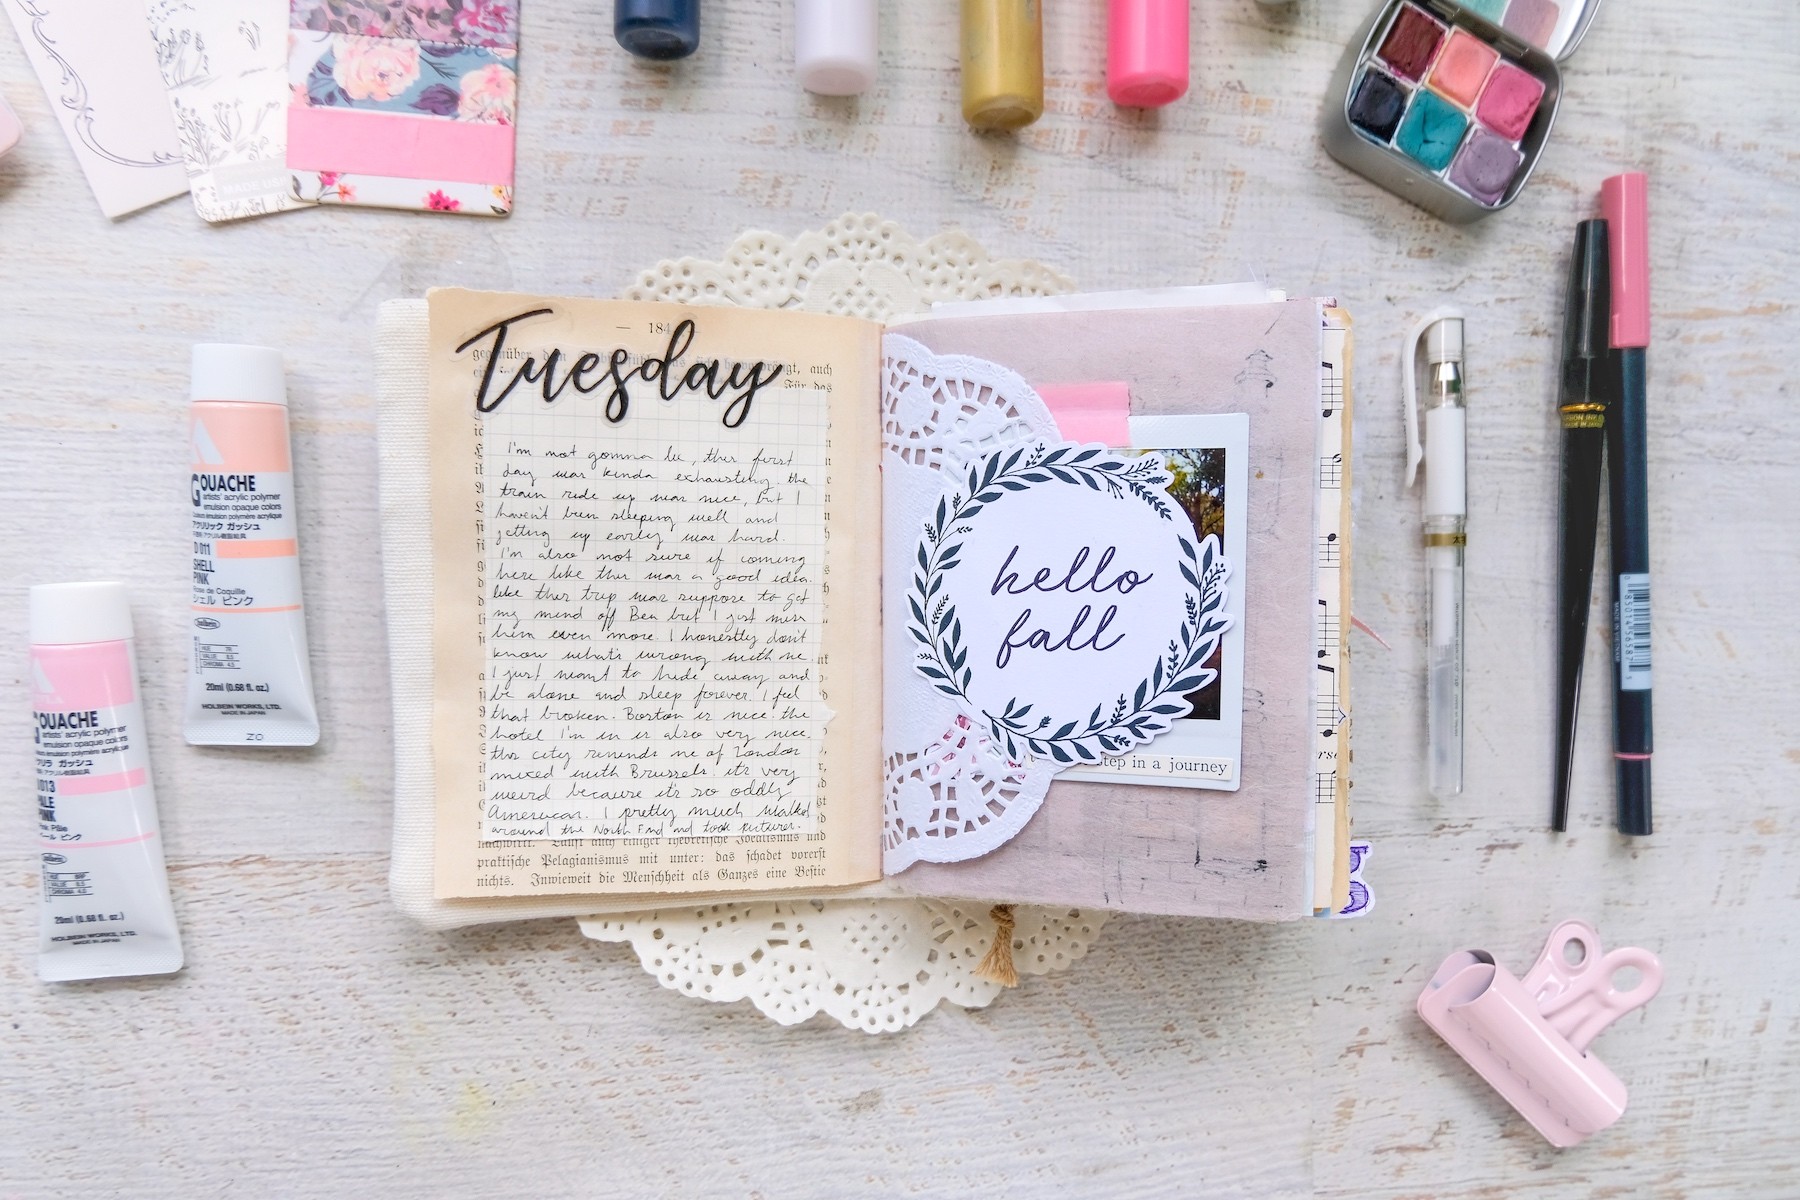 MADE USA
— 184
Tuesday
gegenüber
auch
Für das
I'm not gonna lie, this first
day was kinda exhausting. the
train ride up was nice, but I
haven't been sleeping well and
getting up early was hard.
I'm also not sure if coming
here like this was a good idea.
like this trip was suppose to get
my mind off Ben but I just miss
him even more. I honestly don't
know what's wrong with me.
I just want to hide away and
be alone and sleep forever. I feel
that broken. Boston is nice. the
hotel I'm in is also very nice.
this city reminds me of London
mixed with Brussels. it's very
weird because it's so oddly
American. I pretty much walked
around the North End and took pictures.
theoretische Idealismus und
praktische Pelagianismus mit unter: das schadet vorerst
nichts. Inwieweit die Menschheit als Ganzes eine Bestie
hello
fall
step in a journey
GOUACHE
artists' acrylic polymer
emulsion opaque colors
emulsion polymère acrylique
アクリリック ガッシュ
D 011
SHELL
PINK
Rose de Coquille
シェル ピンク
HUE
VALUE
CHROMA
20ml (0.68 fl. oz.)
HOLBEIN WORKS, LTD.
MADE IN JAPAN
ZO
GOUACHE
artists' acrylic polymer
emulsion opaque colors
emulsion polymère acrylique
ガッシュ
013
PALE
PINK
Pâle
ピンク
HUE
VALUE
CHROMA
20ml (0.68 fl. oz.)
HOLBEIN WORKS, LTD.
MADE IN JAPAN
MADE IN VIETNAM